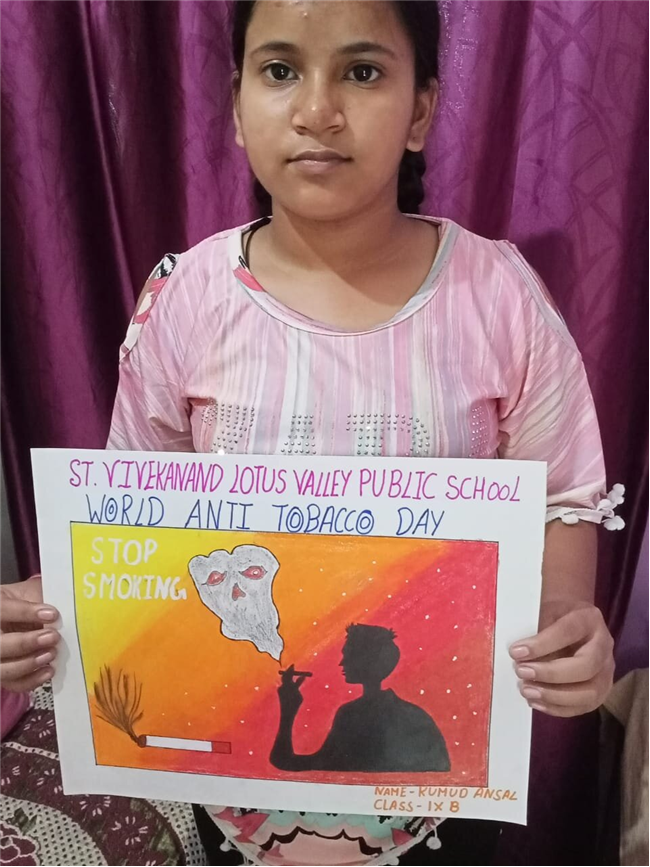 ST. VIVEKANAND LOTUS VALLEY PUBLIC SCHOOL
WORLD ANTI TOBACCO DAY
STOP
SMOKING
NAME-KUMUD ANSAL
CLASS-IX B